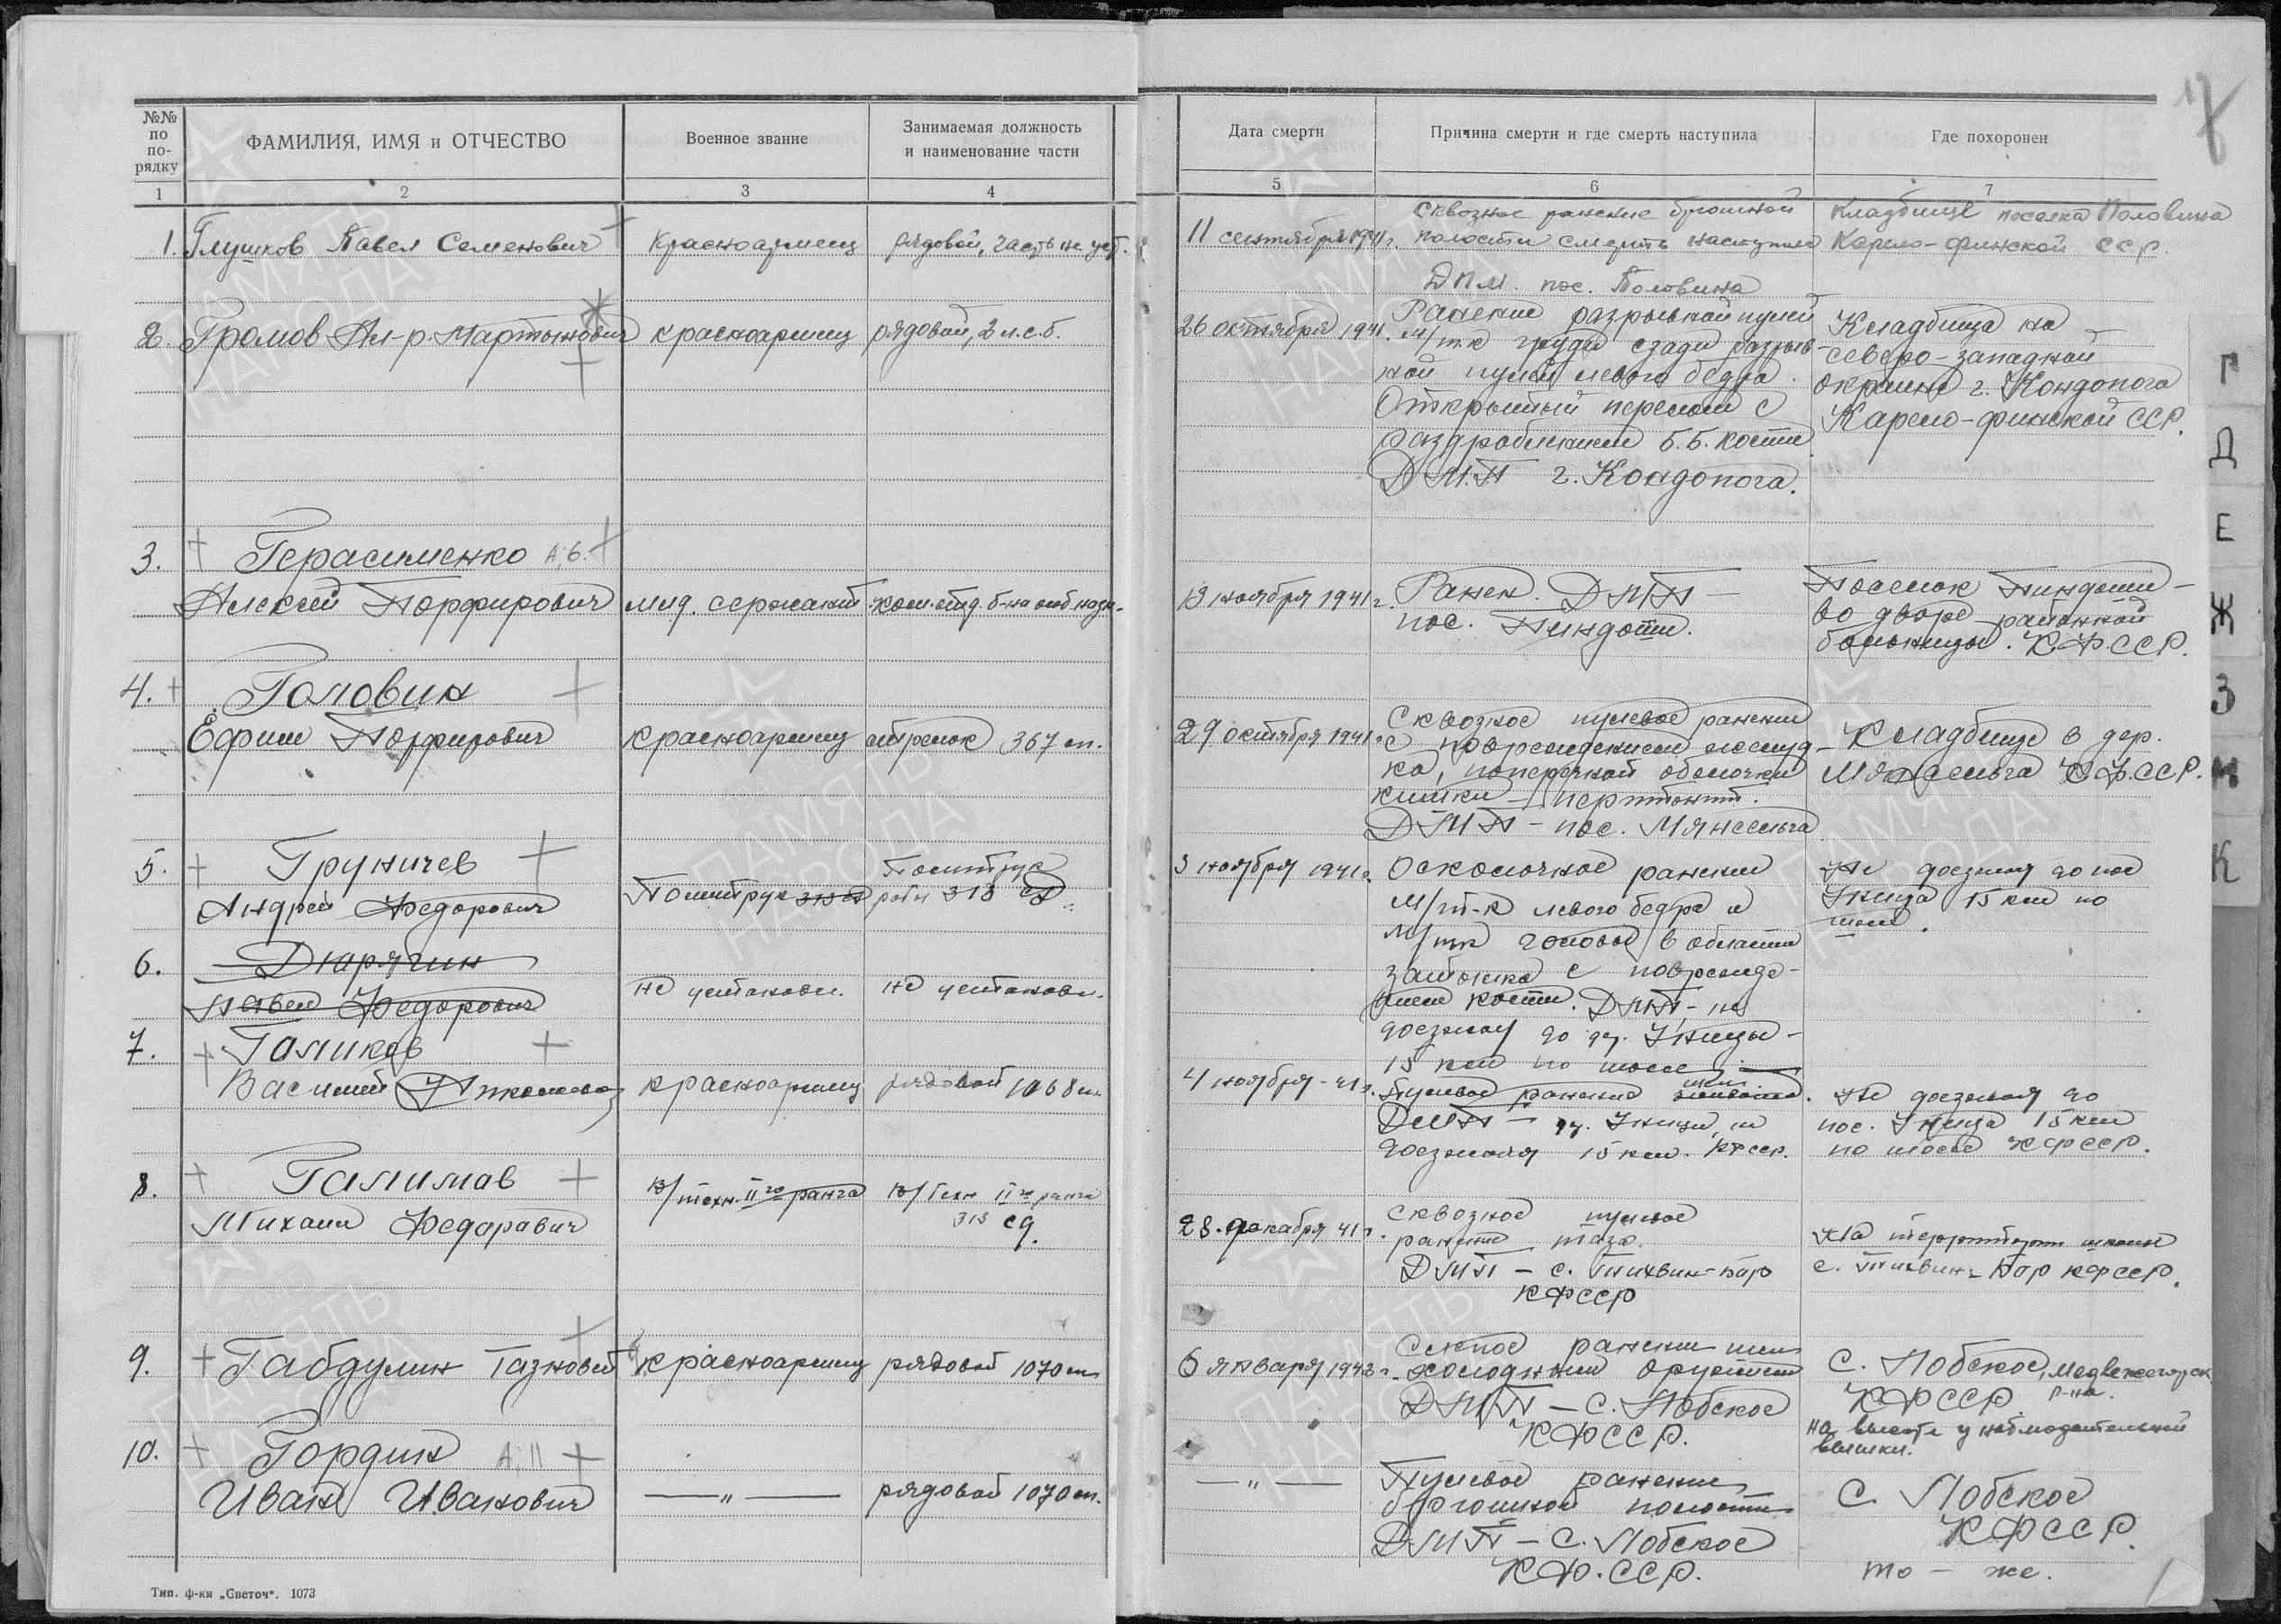 №№ по по-рядку
ФАМИЛИЯ, ИМЯ и ОТЧЕСТВО
Военное звание
Занимаемая должность
и наименование части
Дата смерти
Причина смерти и где смерть наступила
Где похоронен
1 2 3 4 5 6 7
1. Глушков Павел Семенович
Красноармеец
рядовой, часть не уст.
11 сентября 1941 г.
Сквозное ранение брюшной
полости смерть наступила
ДПМ. пос. Половина
Кладбище поселка Половина
Карело-финской ССР.
2. Громов Ал-р Мартынович
красноармеец
рядовой, 2 л.с.б.
26 октября 1941.
Ранение разрывной пулей
м/тк груди сзади разрыв-
ной пулей левого бедра.
Открытый перелом с
раздроблением б.б. кости
ДМП г. Кондопога.
Кладбище на
северо-западной
окраине г. Кондопога
Карело-финской ССР.
3. Герасименко А,6.
Алексей Порфирович
млд. сержант
ком. отд. б-на особ. назн.
13 ноября 1941 г.
Ранен. ДМП
пос. Пиндоши.
Поселок Пиндоши-
во дворе районной
больницы. К.Ф.ССР.
4. Головин
Ефим Порфирович
красноармеец
стрелок 367 сп.
29 октября 1941.
Сквозное пулевое ранение
с повреждением желуд-
ка, поперечной оболочки
кишки – перитонит.
ДМП – пос. Мянсельга
Кладбище в дер.
Мянсельга К.Ф.ССР.
5. Груничев
Андрей Федорович
Политрук
Политрук
роты 313 сд
3 ноября 1941 г.
Осколочное ранение
м/т-к левого бедра и
м/тк головы в области
затылка с поврежде-
нием кости. ДМП – не
доезжая до ду. Уницы –
15 км по шоссе
Не доезжая до пос
Уница 15 км по
шоссе.
6. Дюрягин
Павел Федорович
не установл.
не установл.
7. Голиков
Василий
красноармеец
рядовой 1068 сп
4 ноября - 41 г.
Пулевое ранение шеи.
ДМП – ду. Уницы, не
доезжая 15 км. КФССР.
Не доезжая до
пос. Уница 15 км
по шоссе КФССР.
8. Галимов
Михаил Федорович
в/техн. IIго ранга
в/техн IIго ранга
313 сд.
28. декабря 41 г.
Сквозное пулевое
ранение таза.
ДМП – с. Тихвин-Бор
КФССР
На территории школы
с. Тихвин-Бор КФССР.
9. Габдулин Газновей
красноармеец
рядовой 1070 сп
6 января 1942 г.
Слепое ранение шеи
холодным оружием
ДМП – С. Лобское
КФССР.
С. Лобское, Медвежегорск
КФССР. р-на.
на высоте у наблюдательной
вышки.
10. Гордин А,11
Иван Иванович
— " —
рядовой 1070 сп.
— " —
Пулевое ранение
брюшной полости
ДМП – С. Лобское
КФ.ССР.
С. Лобское
КФССР.
то – же.
Г
Д
Е
Ж
З
И
К
Тип. ф-ки „Светоч“. 1073
ПАМЯТЬ
НАРОДА